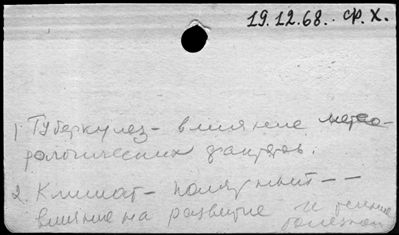 19.12.68. ф.х.
1) Туберкулез - влияние метео-
рологических факторов.
2. Климат - полярный - -
влияние на развитие и течение
болезней